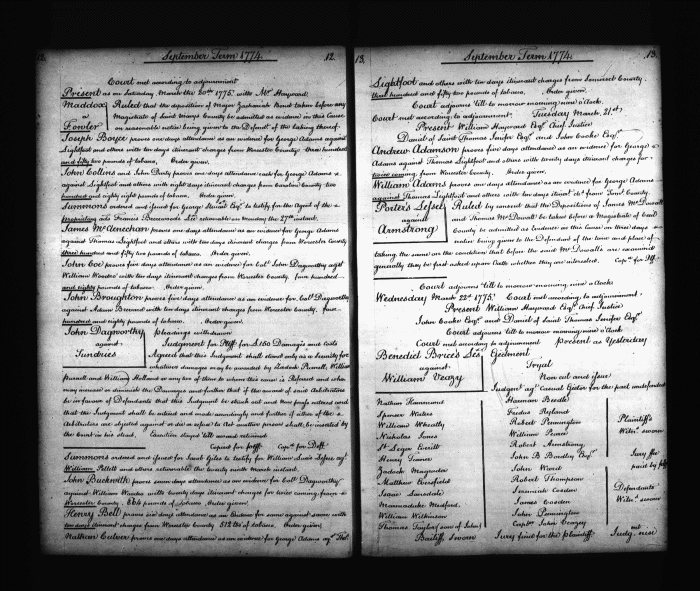 September Term 1774.
12.
Court met according to adjournment
Present as on Saturday March the 20th 1775. with Mr Hayward
Maddox Ruled that the deposition of Major Zachariah Bond taken before any
a Magistrate of Saint Marys County be admitted as evidence in this Cause
Fowler on reasonable notice being given to the Defendt of the taking thereof.
Joseph Bozee proves five days attendance as an evidence for George Adams against
Lightfoot and others with ten days itinerant charges from Worcester County three hundred
and fifty two pounds of tobacco. Order given.
John Collins and John Purty proves one days attendance each for George Adams
against Lightfoot and others with eight days itinerant charges from Caroline County two
hundred and eighty eight pounds of tobacco. Order given.
Summons ordered and issued for George Esqr to testify for the Agent of the
Proprietary ads Francis Lee returnable on Monday the 27th instant.
James McClenechan proves one days attendance as an evidence for George Adams
against Thomas Lightfoot and others with ten days itinerant charges from Worcester County
three hundred and fifty ten pounds of tobacco. Order given.
John Coe proves five days attendance as an evidence for Colo John Dagworthy agt
William Warden with ten days itinerant charges from Worcester County. four hundred
and eighty pounds of tobacco. Order given.
John Broughton proves five days attendance as an evidence for Colo Dagworthy
against Adam with ten days itinerant charges from Worcester County. four
hundred and eighty pounds of tobacco. Order given.
John Dagworthy pleadings withdrawn
against Judgment for Plff for £150 Damages and costs
Sundries Agreed that this Judgment shall stand only as a Security for
whatever damages may be awarded by Zadock Purnell, William
Purnell and William Holland or any two of them to whom this cause is Referred and who
may increase or diminish the Damages and further that if the award of said Arbitrators
be in favour of Defendants that this Judgment be struck out and non pros's entered and
that the Judgment shall be entered and made accordingly and further if either of the
Arbitrators are objected against or die or refuse to Act another person shall be inserted by
the Court in his stead, Execution stayed till award returned
Copied for plff. Copy for Deft
Summons ordered and issued for Saml Giles to testify for William agt
William Pellett and others returnable the twenty ninth March instant.
John Buckwith proves seven days attendance as an evidence for Colo Dagworthy
against William Warden with twenty days itinerant charges for twice coming from
Worcester County. 800 pounds of Tobacco. Order given.
Henry Bell proves six days attendance as an Evidence for same against same with
ten days itinerant charges from Worcester County 512 lbs of tobacco. Order given.
Nathan Culver proves one days attendance as an evidence for George Adams agt Thos
13.
September Term 1774.
13.
Lightfoot and others with ten days itinerant charges from Somerset County.
three hundred and fifty two pounds of tobacco. Order given.
Court adjourns till to morrow morning nine oClock.
Court met according to adjournment. Tuesday March 21st
Present William Hayward Esqr Chief Justice
Daniel of Saint Thomas Jenifer Esqr and John Cooke Esqr
Andrew Adamson proves five days attendance as an evidence for George
Adams against Thomas Lightfoot and others with twenty days itinerant charges for
twice coming from Worcester County. Order given.
William Adams proves days attendance as an evidence for George Adams
against Thomas Lightfoot and others with ten days itinert chs from Somt County.
Porter's Lessee Ruled by consent that the Depositions of James McDowall
against and Thomas McDowall be taken before a Magistrate of Cecil
Armstrong County be admitted as evidence in this cause on three days
notice being given to the Defendant of the time and place of
taking the same on the condition that before the said McDowalls are examined
generally they be first asked upon Oath whether they are interested. Copy for Plff.
Court adjourns till to morrow morning nine oClock
Wednesday March 22d 1775. Court met according to adjournment.
Present William Hayward Esqr Chief Justice
John Cooke Esqr and Daniel of Saint Thomas Jenifer Esqr
Court adjourns till to morrow morning nine oClock
Court met according to adjournment present as Yesterday
Benedict Brice's Les Ejectment
against Tryal
William Veazy Non cul and issue
Judgmt agt casual Ejector for the part undefended
Nathan Hammond Harman Beedle
Spencer Waters Fredus Ryland
William Wheatly Robert Pennington Plaintiffs
Nicholas Jones William Pearce Witns sworn
St Leger Everitt Robert Armstrong
Henry Travers John B Bordley Esqr Jury
Zadock Magruder John Ward paid by plff
Matthew Driesfield Robert Thompson
Isaac Lansdale Jeremiah Cosden Defendants
Marmaduke Medford James Cosden Witns sworn
William Wilkinson John Pennington
Thomas Taylor (son of John) Capt John Veazey cut
Bailiff Sworn Jury find for the plaintiff Judg. nisi